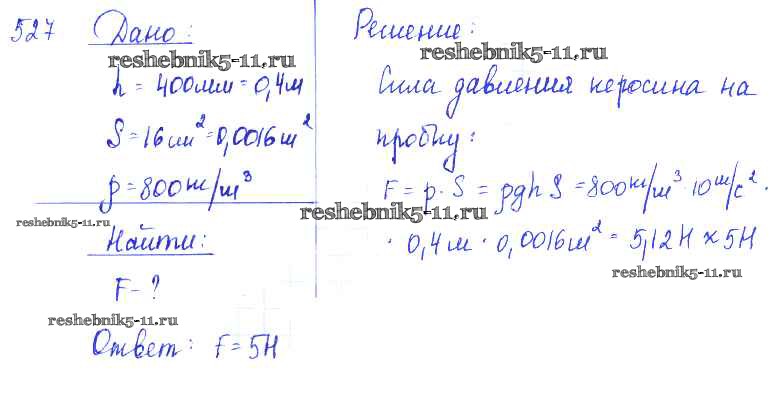 527 Дано:
reshebnik5-11.ru
h = 400мм = 0,4м
S = 16см² = 0,0016м²
ρ = 800кг/м³
reshebnik5-11.ru
Найти:
F - ?
reshebnik5-11.ru
Ответ: F = 5Н
Решение:
reshebnik5-11.ru
Сила давления керосина на
пробку:
F = p · S = ρghS = 800кг/м³ · 10м/с² ·
reshebnik5-11.ru
· 0,4м · 0,0016м² = 5,12Н ≈ 5Н
reshebnik5-11.ru